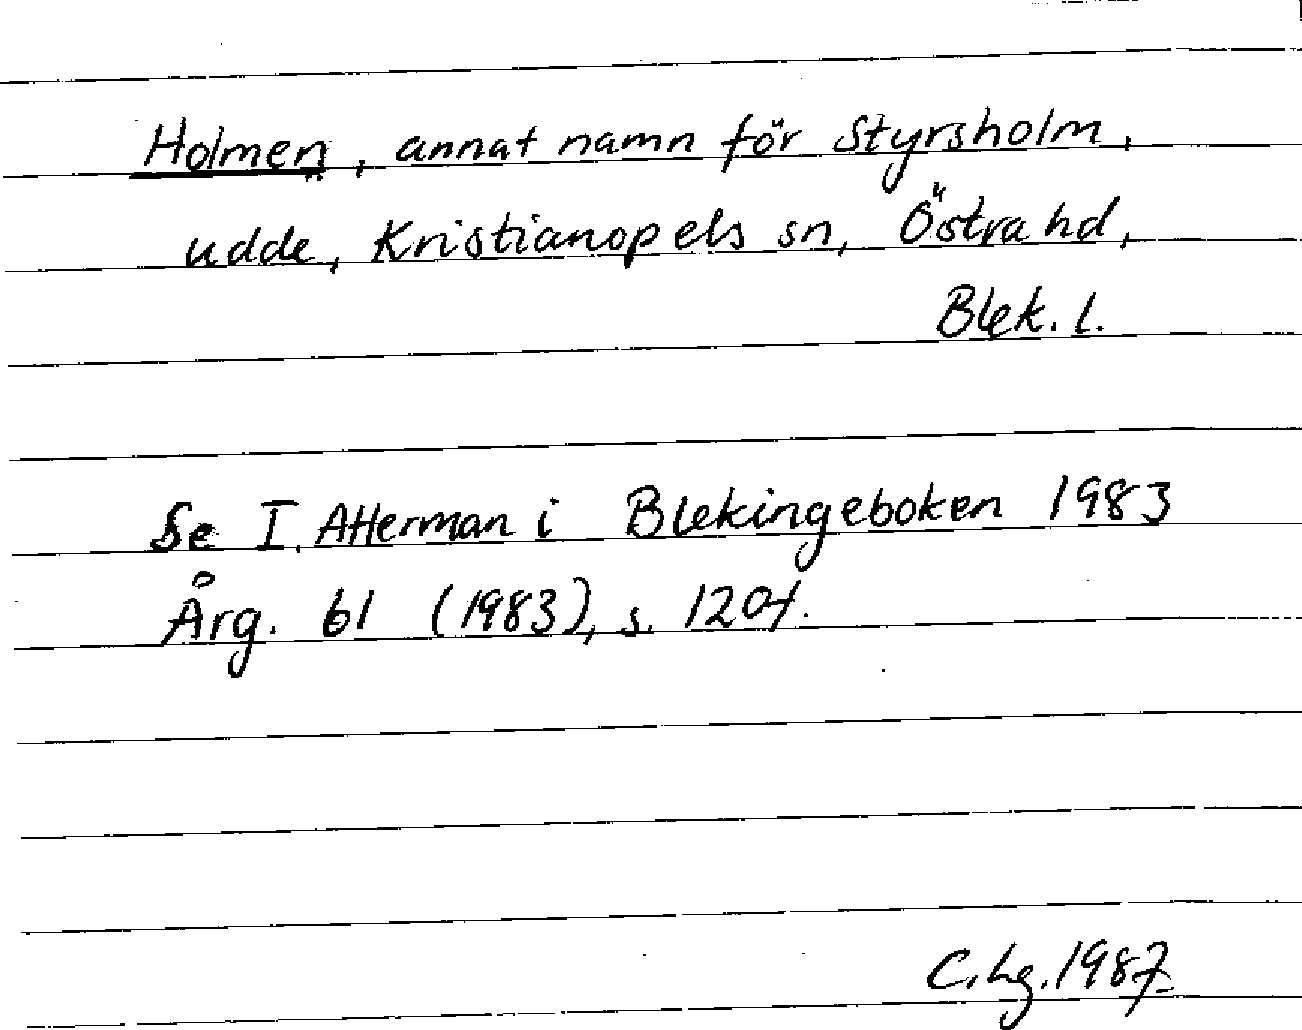 Holmen, annat namn för Styrsholm,
udde, Kristianopels sn, Östra hd,
Blek. l.
Se I. Atterman i Blekingeboken 1983
Årg. 61 (1983), s. 120f.
C. Lg. 1987